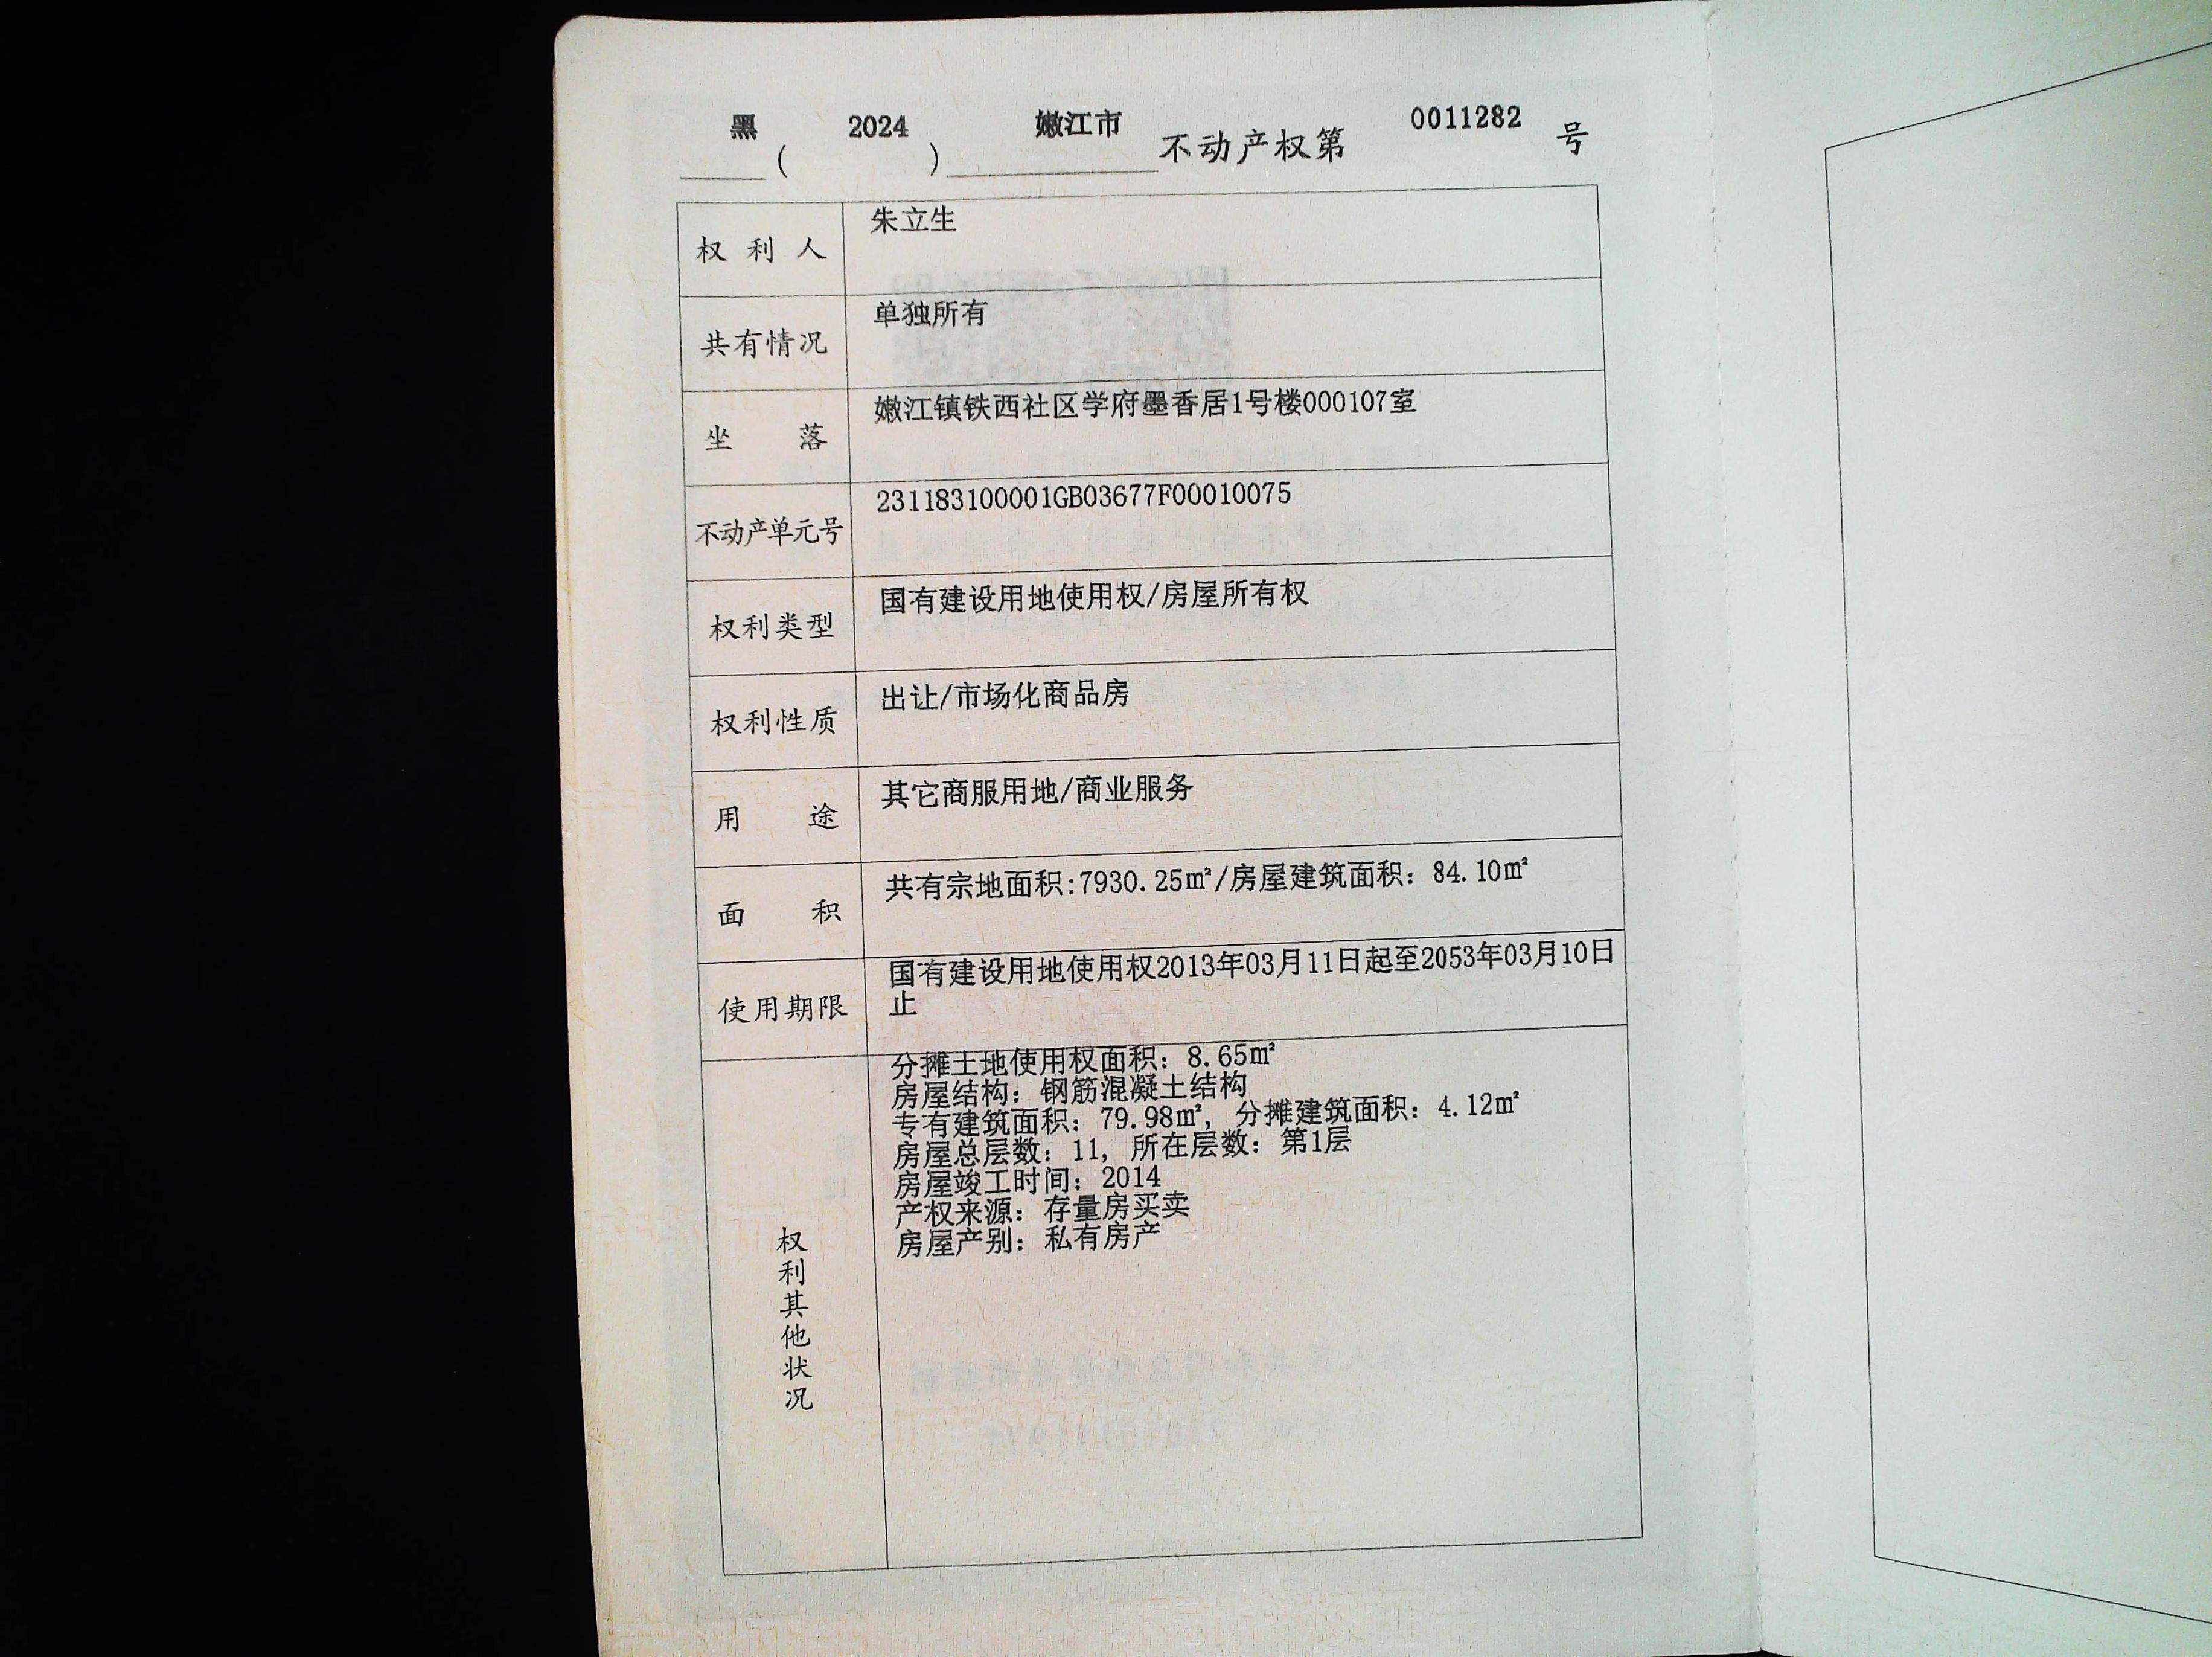 黑(2024)嫩江市不动产权第0011282号
权利人 朱立生
共有情况 单独所有
坐落 嫩江镇铁西社区学府墨香居1号楼000107室
不动产单元号 231183100001GB03677F00010075
权利类型 国有建设用地使用权/房屋所有权
权利性质 出让/市场化商品房
用途 其它商服用地/商业服务
面积 共有宗地面积:7930.25㎡/房屋建筑面积：84.10㎡
使用期限 国有建设用地使用权2013年03月11日起至2053年03月10日
止
权利其他状况
分摊土地使用权面积：8.65㎡
房屋结构：钢筋混凝土结构
专有建筑面积：79.98㎡，分摊建筑面积：4.12㎡
房屋总层数：11，所在层数：第1层
房屋竣工时间：2014
产权来源：存量房买卖
房屋产别：私有房产